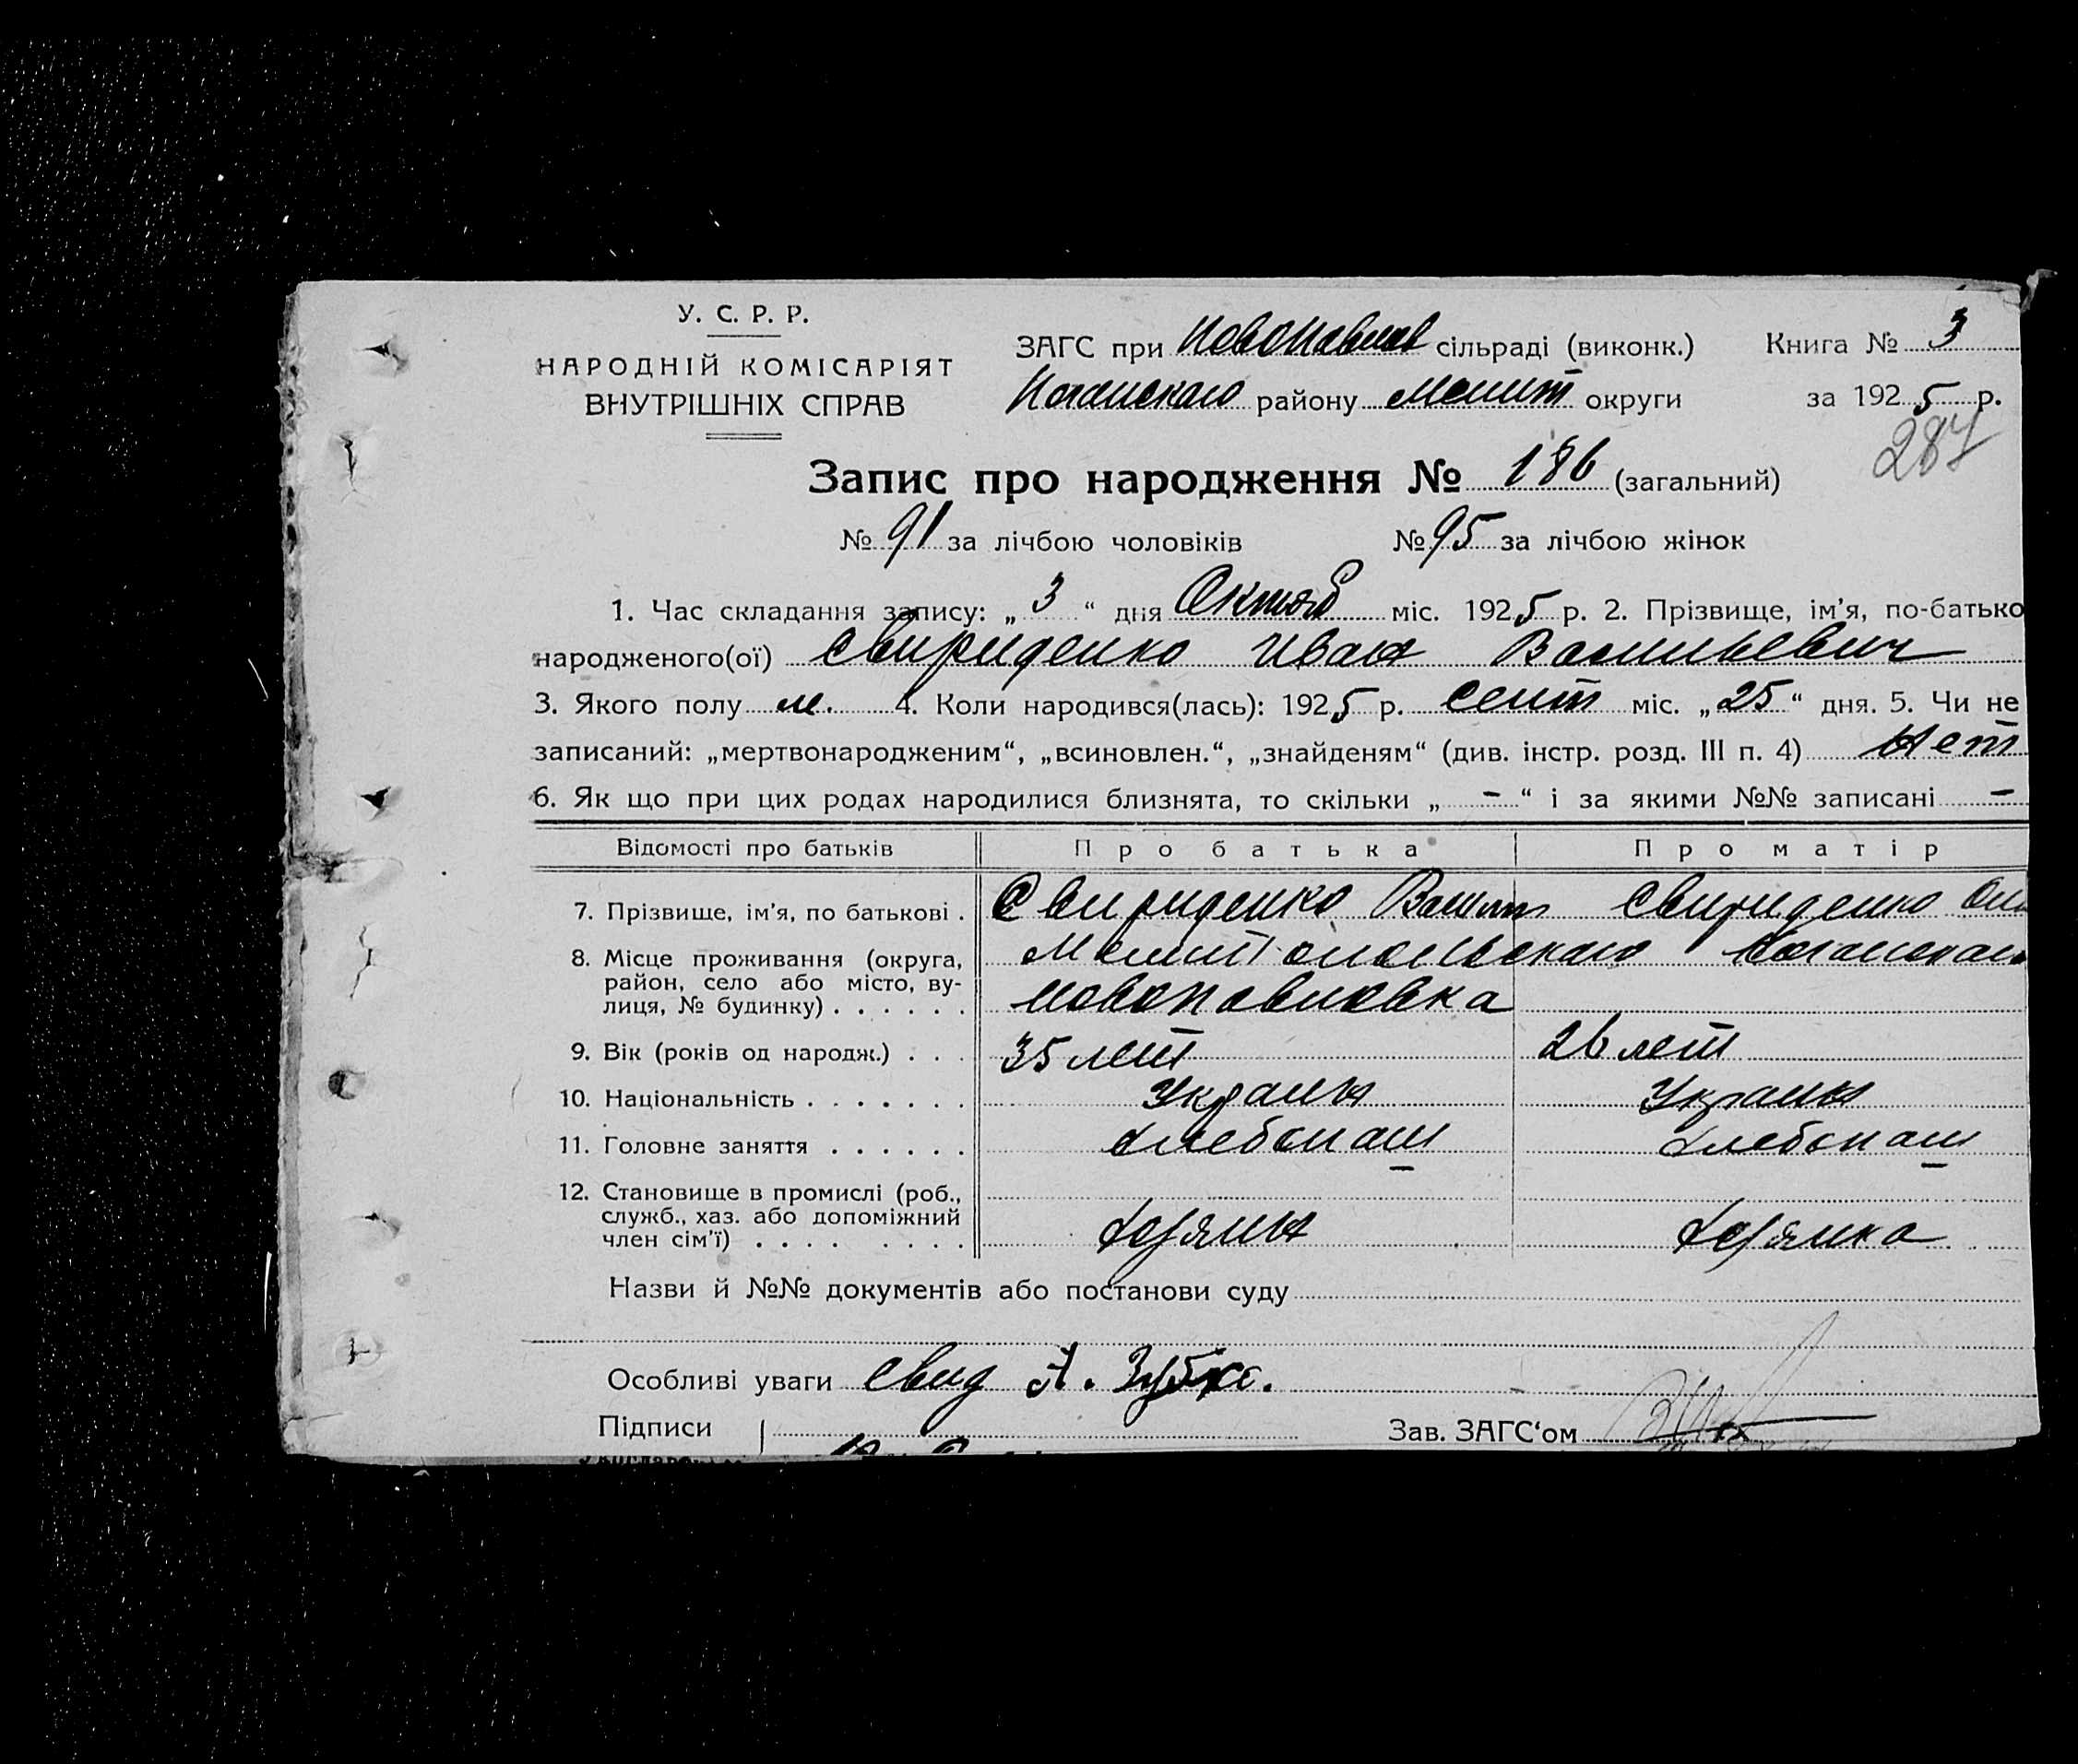 У. С. Р. Р.
НАРОДНІЙ КОМІСАРІЯТ
ВНУТРІШНІХ СПРАВ
ЗАГС при Новопавлов сільраді (виконк.) Книга № 3
Ногайскаго району Мелит округи за 1925 р.
287
Запис про народження № 186 (загальний)
№ 91 за лічбою чоловіків № 95 за лічбою жінок
1. Час складання запису: „ 3 “ дня Октяб міс. 1925 р. 2. Прізвище, ім’я, по-батько
народженого(ої) Свириденко Иван Васильевич
3. Якого полу м. 4. Коли народився(лась): 1925 р. Сент міс. „ 25 “ дня. 5. Чи не
записаний: „мертвонародженим“, „всиновлен.“, „знайденям“ (див. інстр. розд. III п. 4) Нет
6. Як що при цих родах народилися близнята, то скільки „ – “ і за якими №№ записані –
Відомості про батьків Про батька Про матір
7. Прізвище, ім’я, по батькові . Свириденко Васил Свириденко
8. Місце проживання (округа, Мелитопольскаго Ногайскаго
район, село або місто, ву-
лиця, № будинку) . . . . . . Новопавловка
9. Вік (років од народж.) . . . 35 лет 26 лет
10. Національність . . . . . . . Украин Украин
11. Головне заняття . . . . . . Хлебопаш Хлебопаш
12. Становище в промислі (роб.,
служб., хаз. або допоміжний
член сім’ї) . . . . . . . . Хозяин Хозяйка
Назви й №№ документів або постанови суду
Особливі уваги Свид А.
Підписи Зав. ЗАГС‘ом